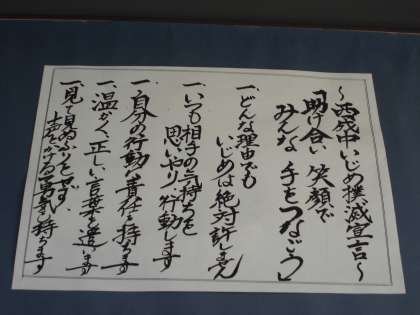 ～西成中いじめ撲滅宣言～
「助け合い笑顔で
みんな手をつなごう」
一、どんな理由でも
いじめは絶対許しません
一、いつも相手の気持ちを
思いやり、行動します
一、自分の行動に責任を持ちます
一、温かく、正しい言葉を遣います
一、見て見ぬふりをせず、
声をかける勇気を持ちます